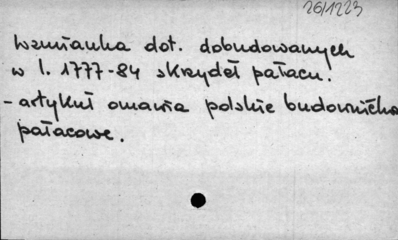 26/1223
Wzmianka dot. dobudowanych
w l. 1777-84 skrzydeł pałacu.
- artykuł omawia polskie budownictwo
pałacowe.